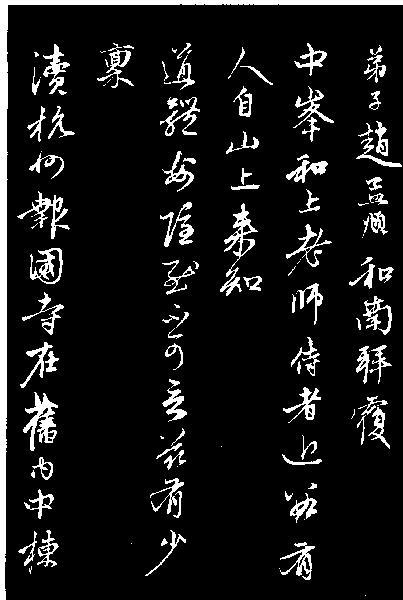 弟子趙孟頫和南拜覆
中峯和上老師侍者近有
人自山上來知
道體安隱可言茲有少
稟
瀆杭州報國寺在舊內中棟